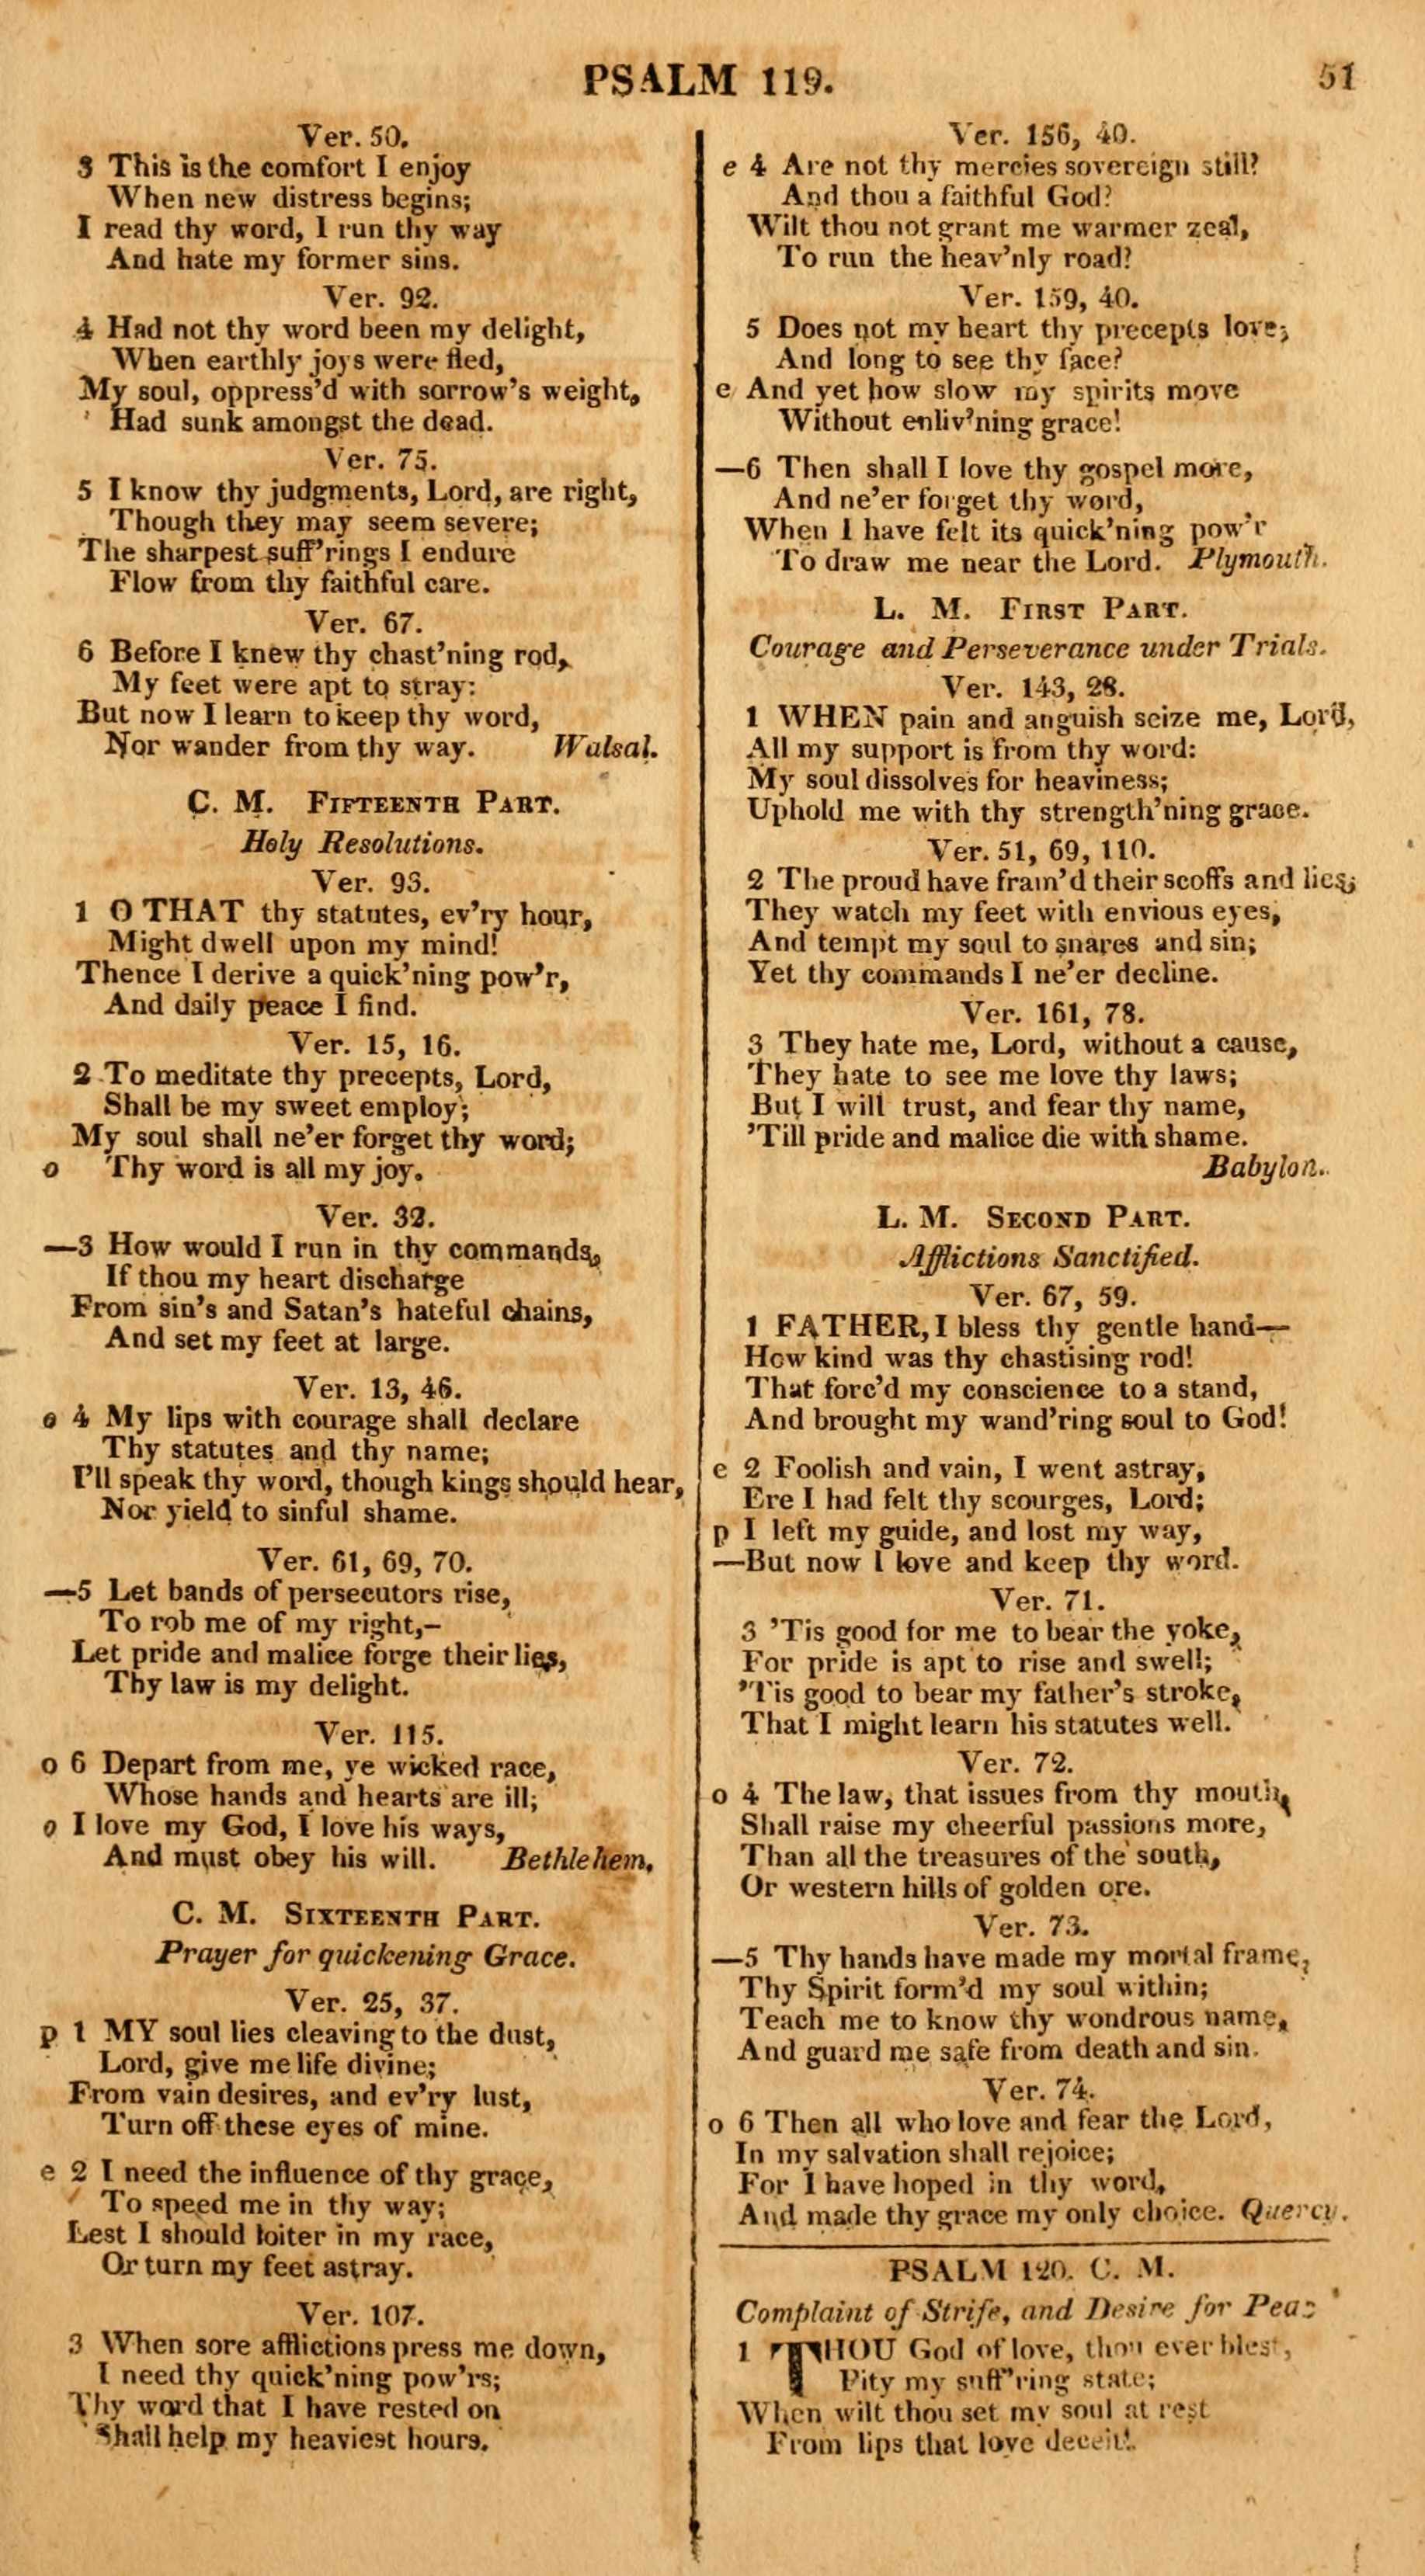 PSALM 119.
51
Ver. 50.
3 This is the comfort I enjoy
When new distress begins;
I read thy word, I run thy way
And hate my former sins.
Ver. 92.
4 Had not thy word been my delight,
When earthly joys were fled,
My soul, oppress'd with sorrow's weight,
Had sunk amongst the dead.
Ver. 75.
5 I know thy judgments, Lord, are right,
Though they may seem severe;
The sharpest suff'rings I endure
Flow from thy faithful care.
Ver. 67.
6 Before I knew thy chast'ning rod,
My feet were apt to stray:
But now I learn to keep thy word,
Nor wander from thy way. Walsal.
C. M. FIFTEENTH PART.
Holy Resolutions.
Ver. 93.
1 O THAT thy statutes, ev'ry hour,
Might dwell upon my mind!
Thence I derive a quick'ning pow'r,
And daily peace I find.
Ver. 15, 16.
2 To meditate thy precepts, Lord,
Shall be my sweet employ;
My soul shall ne'er forget thy word;
o Thy word is all my joy.
Ver. 32.
—3 How would I run in thy commands,
If thou my heart discharge
From sin's and Satan's hateful chains,
And set my feet at large.
Ver. 13, 46.
o 4 My lips with courage shall declare
Thy statutes and thy name;
I'll speak thy word, though kings should hear,
Nor yield to sinful shame.
Ver. 61, 69, 70.
—5 Let bands of persecutors rise,
To rob me of my right,—
Let pride and malice forge their lies,
Thy law is my delight.
Ver. 115.
o 6 Depart from me, ye wicked race,
Whose hands and hearts are ill;
o I love my God, I love his ways,
And must obey his will. Bethlehem.
C. M. SIXTEENTH PART.
Prayer for quickening Grace.
Ver. 25, 37.
p 1 MY soul lies cleaving to the dust,
Lord, give me life divine;
From vain desires, and ev'ry lust,
Turn off these eyes of mine.
e 2 I need the influence of thy grace,
To speed me in thy way;
Lest I should loiter in my race,
Or turn my feet astray.
Ver. 107.
3 When sore afflictions press me down,
I need thy quick'ning pow'rs;
Thy word that I have rested on
Shall help my heaviest hours.
Ver. 156, 40.
e 4 Are not thy mercies sovereign still?
And thou a faithful God?
Wilt thou not grant me warmer zeal,
To run the heav'nly road?
Ver. 159, 40.
5 Does not my heart thy precepts love;
And long to see thy face?
e And yet how slow my spirits move
Without enliv'ning grace!
—6 Then shall I love thy gospel more,
And ne'er forget thy word,
When I have felt its quick'ning pow'r
To draw me near the Lord. Plymouth.
L. M. FIRST PART.
Courage and Perseverance under Trials.
Ver. 143, 28.
1 WHEN pain and anguish seize me, Lord,
All my support is from thy word:
My soul dissolves for heaviness;
Uphold me with thy strength'ning grace.
Ver. 51, 69, 110.
2 The proud have fram'd their scoffs and lies;
They watch my feet with envious eyes,
And tempt my soul to snares and sin;
Yet thy commands I ne'er decline.
Ver. 161, 78.
3 They hate me, Lord, without a cause,
They hate to see me love thy laws;
But I will trust, and fear thy name,
'Till pride and malice die with shame.
Babylon.
L. M. SECOND PART.
Afflictions Sanctified.
Ver. 67, 59.
1 FATHER, I bless thy gentle hand—
How kind was thy chastising rod!
That forc'd my conscience to a stand,
And brought my wand'ring soul to God!
e 2 Foolish and vain, I went astray,
Ere I had felt thy scourges, Lord;
p I left my guide, and lost my way,
—But now I love and keep thy word.
Ver. 71.
3 'Tis good for me to bear the yoke,
For pride is apt to rise and swell;
'Tis good to bear my father's stroke,
That I might learn his statutes well.
Ver. 72.
o 4 The law, that issues from thy mouth,
Shall raise my cheerful passions more,
Than all the treasures of the south,
Or western hills of golden ore.
Ver. 73.
—5 Thy hands have made my mortal frame,
Thy Spirit form'd my soul within;
Teach me to know thy wondrous name,
And guard me safe from death and sin.
Ver. 74.
o 6 Then all who love and fear the Lord,
In my salvation shall rejoice;
For I have hoped in thy word,
And made thy grace my only choice. Quercy.
PSALM 120. C. M.
Complaint of Strife, and Desire for Peac
1 THOU God of love, thou ever blest,
Pity my suff'ring state;
When wilt thou set my soul at rest
From lips that love deceit!